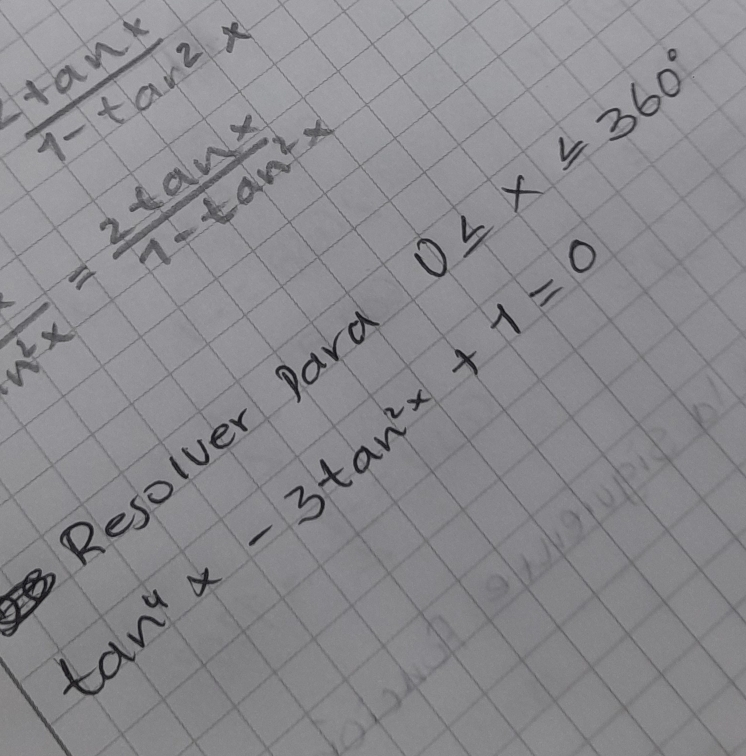 2tanx
1-tan²x
= 2tanx
n²x 1-tan²x
Resolver para 0 ≤ x ≤ 360°
tan⁴x - 3tan²x + 1 = 0